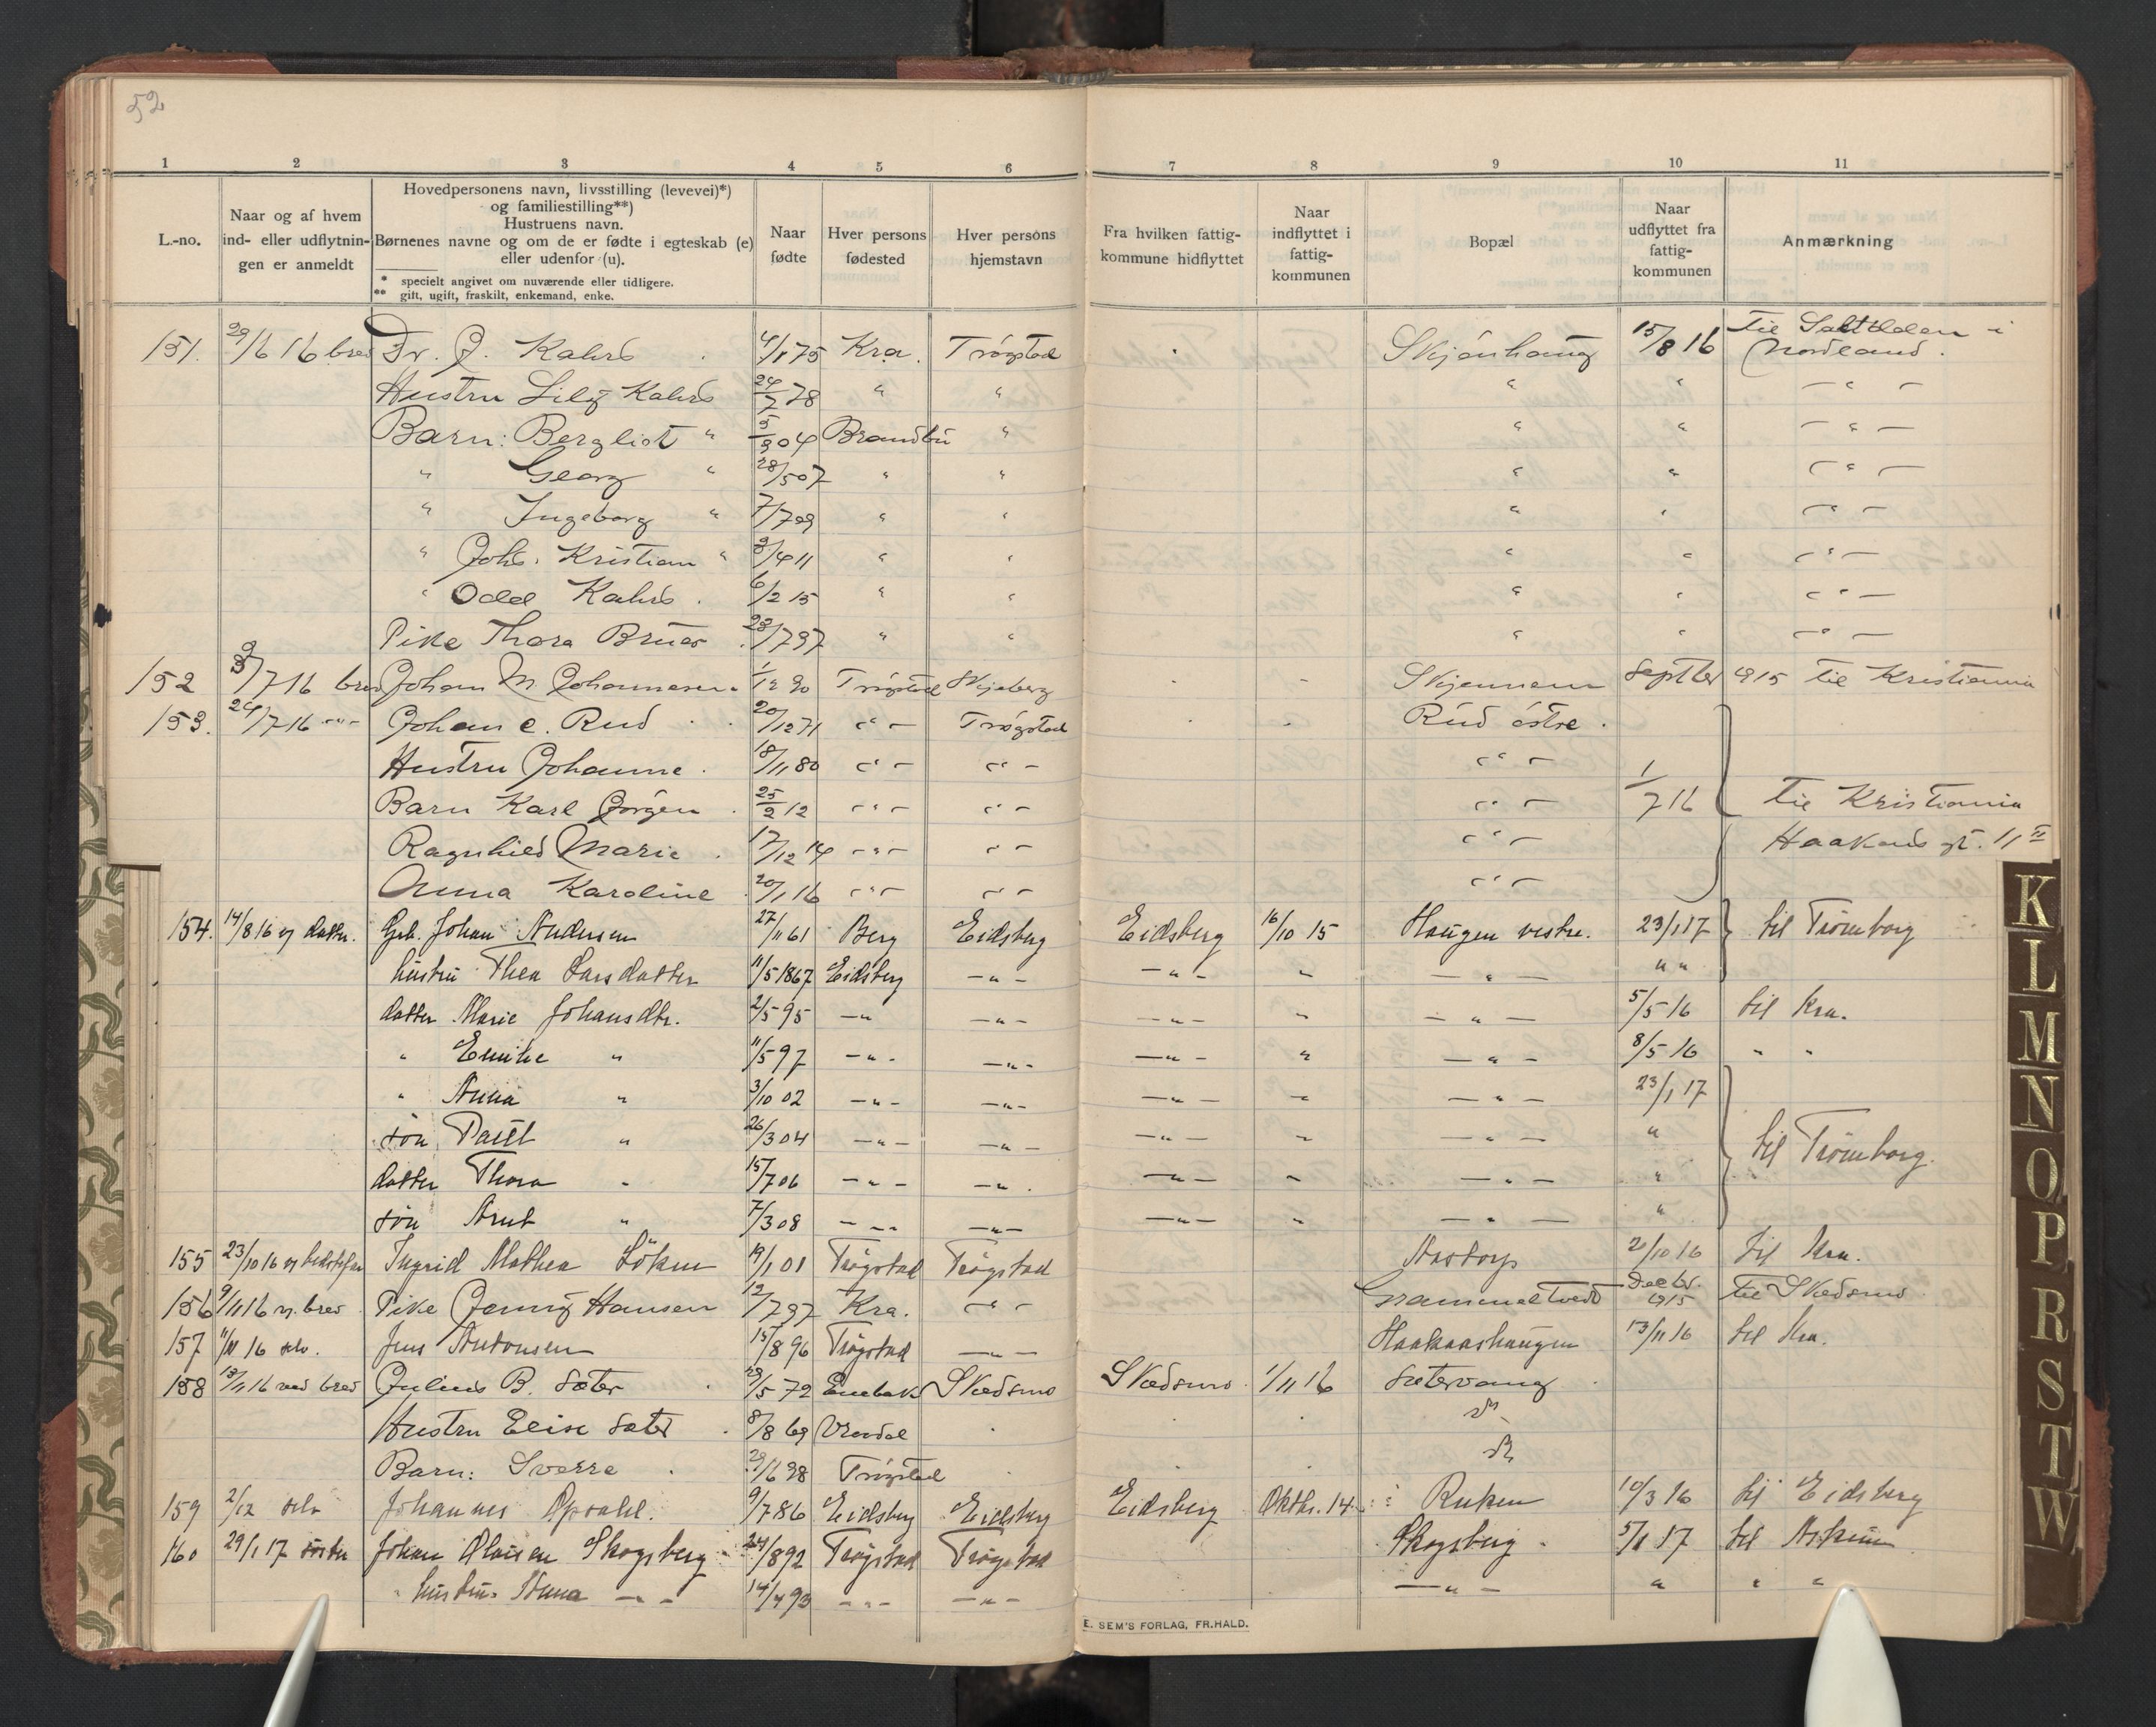 52
1 2 3 4 5 6 7 8 9 10 11
L.-no.
Naar og af hvem
ind- eller udflytnin-
gen er anmeldt
Hovedpersonens navn, livsstilling (levevei)*)
og familiestilling**)
Hustruens navn.
Børnenes navne og om de er fødte i egteskab (e)
eller udenfor (u).
* specielt angivet om nuværende eller tidligere.
** gift, ugift, fraskilt, enkemand, enke.
Naar
fødte
Hver persons
fødested
Hver persons
hjemstavn
Fra hvilken fattig-
kommune hidflyttet
Naar
indflyttet i
fattig-
kommunen
Bopæl
Naar
udflyttet fra
fattig-
kommunen
Anmærkning
151. 29/6 16 brev Dr. J. Kahrs 4/1 75 Kra. Trøgstad Skjønhaug 15/8 16 Til Saltdalen i
Nordland.
Hustru Lily Kahrs 24/7 78 " " " " — " —
Barn: Bergliot " 5/9 04 Brandbu " " " — " —
" Georg " 28/5 07 " " " " — " —
" Ingeborg " 7/7 09 " " " " — " —
" Johs. Kristian " 3/4 11 " " " " — " —
" Odd Kahrs. 6/2 15 " " " " — " —
Pike Thora Bruer 23/7 97 " " " " — " —
152 3/7 16 brev Johan M. Johannesen 1/12 90 Trøgstad Skjeberg Skjennem Septber 1915 til Kristiania
153. 24/7 16 — " — Johan E. Rud 20/12 71 — " — Trøgstad Rud østre.
Hustru Johanne. 18/11 80 — " — — " — — " —
Barn Karl Jørgen 25/2 12 — " — — " — — " — 1/7 16 til Kristiania
Ragnhild Marie 17/12 14 — " — — " — — " — Haakons gt. 11 II
Anna Karoline 20/1 16 — " — — " — — " —
154. 14/8 16 v/ datter. Grb. Johan Andersen 27/11 61 Berg Eidsberg Eidsberg 16/10 15 Haugen vestre. 23/1 17 til Trømborg
hustru Thea Larsdatter 11/5 1867 Eidsberg — " — — " — " — " — " "
datter Marie Johansdtr. 2/5 95 — " — " — — " — " — " — 5/5 16 til Kra.
" Emilie " 11/5 97 — " — — " — — " — " — " — 8/5 16 " "
" Anna " 3/10 02 — " — — " — — " — " — " — 23/1 17
søn Paul " 26/3 04 — " — — " — — " — " — " — " til Trømborg.
datter Thora " 15/7 06 — " — — " — — " — " — " — "
søn Arut " 7/3 08 — " — — " — — " — " — " — "
155 23/10 16 v/ bedstefar Ingrid Mathea Löken 19/1 01 Trøgstad Trøgstad Aastorp 2/10 16 til Kra.
156 9/11 16 v. brev Pike Jenny Hansen 12/7 97 Kra. — " — Grammeltvedt Decbr. 1915 til Skedsmo.
157 11/11 16 selv. Jens Antonsen 15/8 96 Trøgstad — " — Haakaashaugen 13/11 16 til Kra.
158 13/11 16 ved brev Julius B. Sæter 23/5 72 Enebak Skedsmo Skedsmo 1/11 16 Sætervang
Hustru Elise Sæter 8/8 69 do.
Barn: Sverre 29/6 98 Trøgstad do.
159 2/12 selv Johannes Opsahl. 9/7 86 Eidsberg Eidsberg Eidsberg Oktbr. 14. Ruken 10/3 16 til Eidsberg
160 29/1 17 søster Johan Olaisen Skogsberg 24/8 92 Trøgstad Trøgstad Skogsberg 5/1 17 til Askim
" hustru Anna — " — 14/4 93 — " — — " — — " — " " "
E. SEM'S FORLAG, FR.HALD.
K
L
M
N
O
P
R
S
T
W